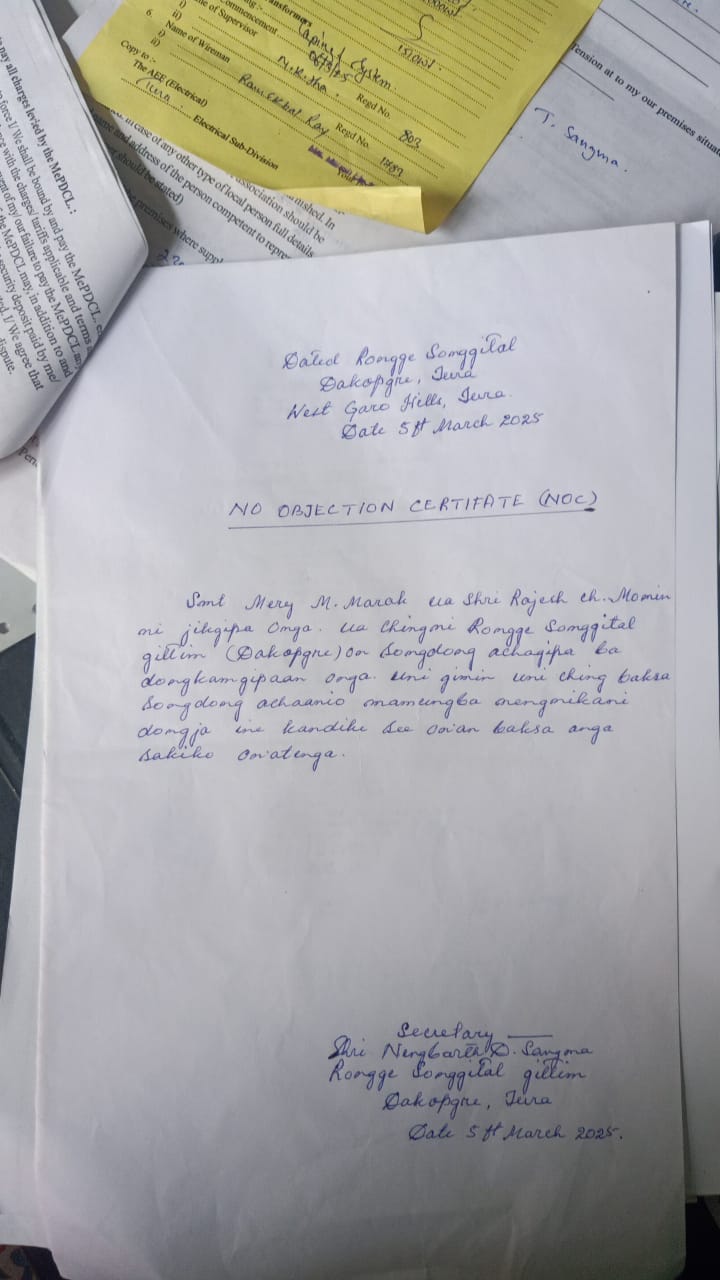 ansformers
Commencement
Capine / System.
06/3/25
150W.
6. i) ne of Supervisor
ii)
N. K. Jha. Regd No. 803
Name of Wireman
i) Ramekbal Ray Regd No. 1787
ii)
Copy to :-
The AEE (Electrical)
Tura Electrical Sub-Division
Tension at to my our premises situat
T. Sangma.
nished. In
in case of any other type of local person full details
association should be
name and address of the person competent to repre
should be stated)
premises where supp
pay all charges levied by the MePDCL :
force I/ We shall be bound by and pay the MePDCL,
with the charges/ tariffs applicable and terms
ent of my/ our failure to pay the MePDCL any
the MePDCL may, in addition to and
security deposit paid by me/
ed. I / We agree that
dispute.
Dated Rongge Songgital
Dakopgre, Tura
West Garo Hills, Tura.
Date 5th March 2025
NO OBJECTION CERTIFATE (NOC)
Smt Mery M. Marak ua Shri Rajesh ch. Momin
ni jikgipa onga. ua Chingni Rongge Songgital
gittim (Dakopgre) on songdong achagipa ba
dongkamgipaan onga. Uni gimin uni ching baksa
songdong achaanio mamungba mengnikani
dongja ine kandike see on'an baksa anga
sakiko on'atenga.
Secretary
Shri Nengbarth D. Sangma
Rongge Songgital gittim
Dakopgre, Tura
Date 5th March 2025.